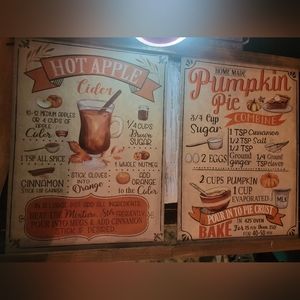 HOT APPLE
Cider
10-12 MEDIUM APPLES
OR 4 CUPS OF
APPLE
Cider
1/4 CUPS
Brown
SUGAR
1 TSP ALL SPICE
1 WHOLE NUTMEG
CINNAMON
STICK
STICK CLOVES
INTO
Orange
ADD
ORANGE
to the Cider
IN A LARGE POT ADD ALL INGREDIENTS.
HEAT THE Mixture. Stir FREQUENTLY.
POUR INTO MUGS & ADD CINNAMON
STICK IF DESIRED
HOME MADE
Pumpkin
Pie
COMBINE
3/4 Cup
Sugar
1 TSP Cinnamon
1/2 TSP Salt
1/2 TSP
Ground
Ginger
1/4 TSP
Ground
cloves
2 EGGS
2 CUPS PUMPKIN
1 CUP
EVAPORATED
MILK
POUR IN TO PIE CRUST
BAKE
IN 425 OVEN
For 15 MIN Then 350
FOR 40-50 MIN